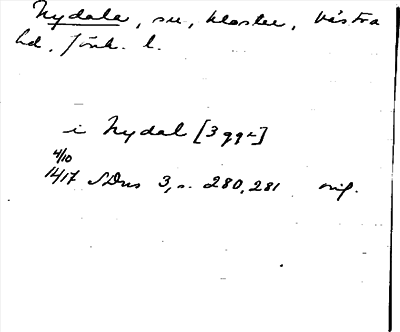 Nydala, sn, kloster, Västra
hd, Jönk. l.
i Nydal [3 ggr]
4/10
1417 SDns 3, s. 280, 281 orig.